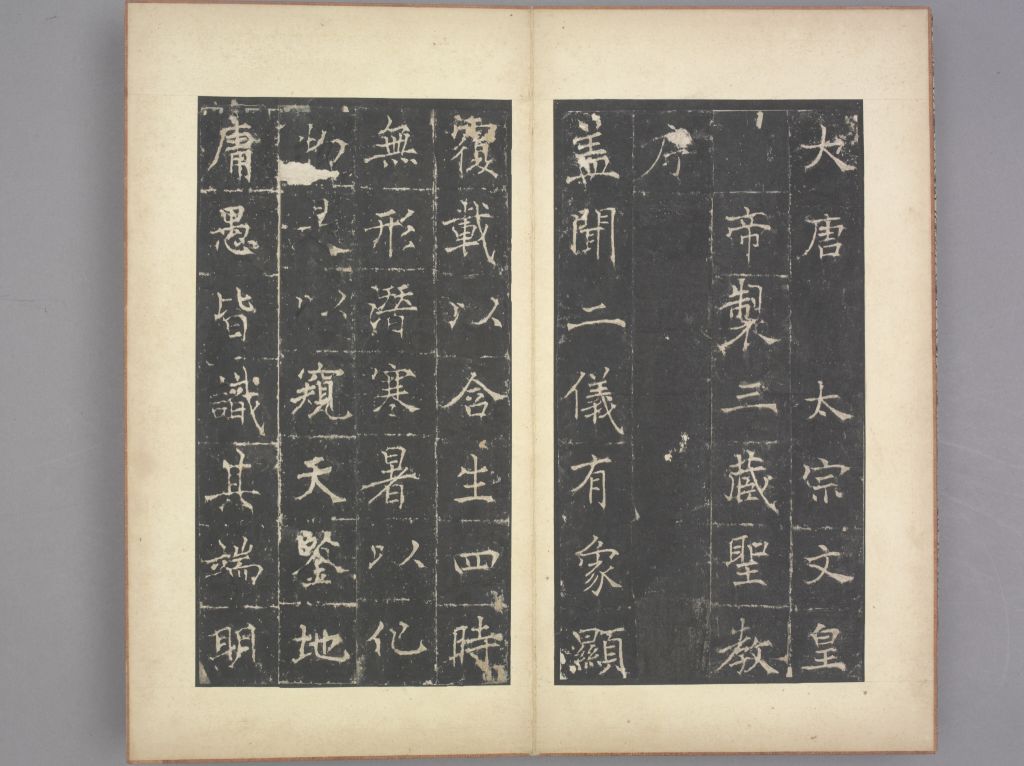 大唐太宗文皇
帝製三藏聖教
序
盖聞二儀有象顯
覆載以含生四時
無形潛寒暑以化
物是以窺天鑒地
庸愚皆識其端明